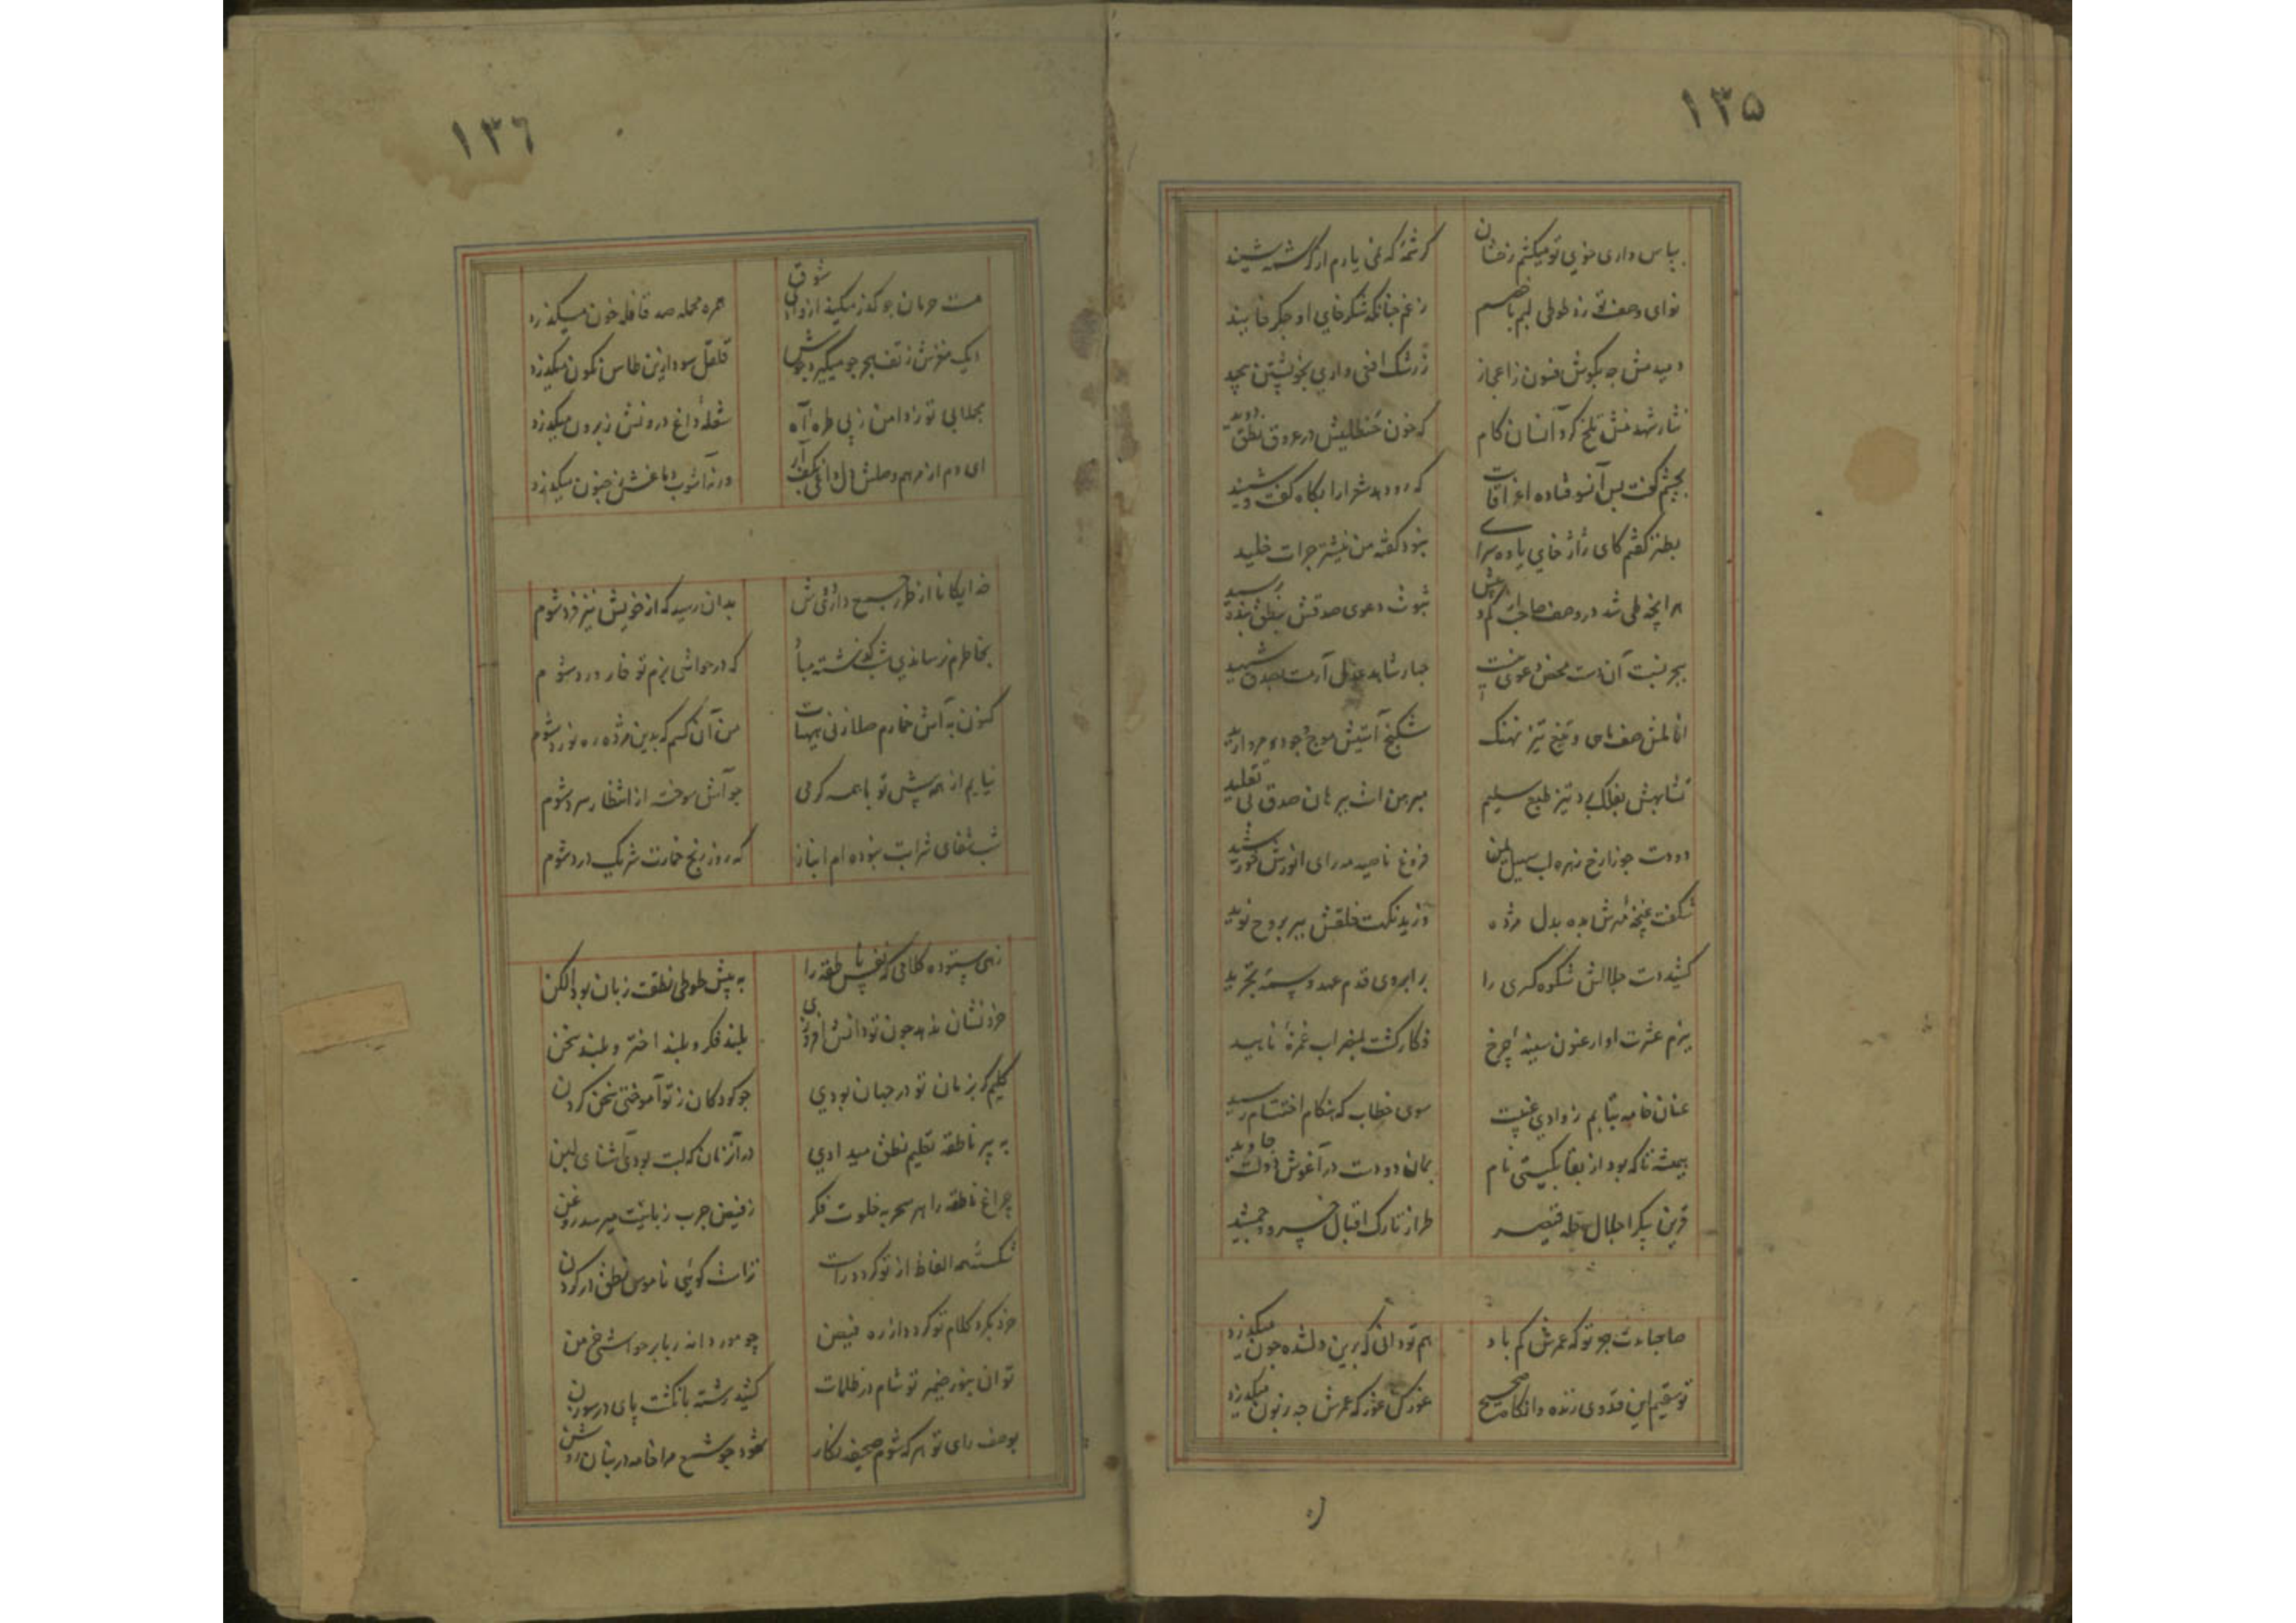 ۱۳۵
بپاس داری خوی تو میکنم زخشان کرشمهٔ که نمی یارم از کرشمه شنید
نوای وصف تو زد طوطی لبم باخصم زغم چنانکه شکر خایی او جکر خایید
دمیدمش چه بکوش فسون زاعجاز زرشک افعی وادی بخویشتن پیچید
نثار شهد منش تلخ کرد آنسان کام که خون حنظلیش در عروق نطق دوید
بچشم کفت بس آنسو فتاده اغراقات که رو دهد شعرا را بکاه کفت و شنید
بطنز کفتم کای ژاژ خای یاوه سرای نبود کفته من نیشتر جرات خلید
هر آنچه طی شد در وصف صاحب ثبوت دعوی صدقش بنطق بنده رسید
ببحر نسبت آن دست محض دعوی نیست چهار شاهد عدل آرمت بصدق شهید
انامل صف ماهی و تیغ تیز نهنک شکنج آستیش موج وجود مروارید
تشابهش بفلک بر تیز طبع سلیم مبرهن است ببرهان صدق بی تقلید
دو دست جوزا رخ زهره لب سهیل یمن فروغ ناصیه مه رای انورش خورشید
شکفت غنچه مهرش بده بدل مژده وزید نکهت خلقش ببر بروح نوید
کشید دست جلالش شکوه کسری را بر ابروی قدم عهد وسمهٔ تجرید
بزم عشرت او ارغنون سینهٔ چرخ فکار کشت بمضراب غمزهٔ ناهید
عنان خامه بتابم ز وادی غیبت سوی خطاب که هنکام اختتام رسید
همیشه تا که بود از بقا بکیتی نام بمان دو دست در آغوش دولت جاوید
قرین پیکر اجلال حله قیصر طراز تارک اقبال خسرو و جمشید
صاحبا مدت جور تو که عمرش کم باد هم تو دانی که برین دلشده چون میکذرد
تو سقیم این قدوی زنده وانکاه صحیح غور کن غور که عمرش چه زبون میکذرد
۱۳٦
مست حرمان چو کذر میکند از وادی شوق همره محمله صد قافله خون میکذرد
دیک مغزش ز تف هجر چو میکیرد جوش قلقل سودا زین طاس نکون میکذرد
بجدایی تو زد دامن زپی طره آه شعلهٔ داغ درونش زبرون میکذرد
ای دم از مرهم وصلش دل داغی بکف آر ورنه آشوب دماغش زجنون میکذرد
خدایکانا از طرز سیج دارئی ش بدان رسید که از خویش نیز فرد شوم
بخاطرم نرساندی شب کذشته مبا که در حواشی بزم تو خار و درد شوم
کنون به آتش خمارم صلا زنی هیهات من آن کسم که بدین مژده ره نورد شوم
نیایم از همه پیش تو با همه کرمی چو آتش سوخته از انتظار سرد شوم
شب شفای شرابت نبوده ام انباز که روز رنج خمارت شریک درد شوم
زهی ستوده کلامی که نفس ناطقه را به پیش طوطی نطقت زبان بود الکن
خرد نشان ندهد چون تو دانش افروزی بلند فکر و بلند اختر و بلند سخن
کلیم کر بزمان تو در جهان بودی چو کودکان ز تو آموختی سخن کردن
به پیر ناطقه تعلیم نطق میدادی در آنزمان که لبت بود آشنای لبن
چراغ ناطقه را هر سحر به خلوت فکر زفیض چرب زبانیت میرسد روغن
شکسته الفاظ از تو کردد راست تراست کوئی ناموس نطق در کردن
خرد بکرد کلام تو کردد از ره فیض چو مور دانه ربا بر حواشی خرمن
توان بنور ضمیر تو شام در ظلمات کشید رشته بانکشت پای در سوزن
بوصف رای تو هر که شوم صحیفه نکار شود چو شمع مرا خامه در بنان روشن